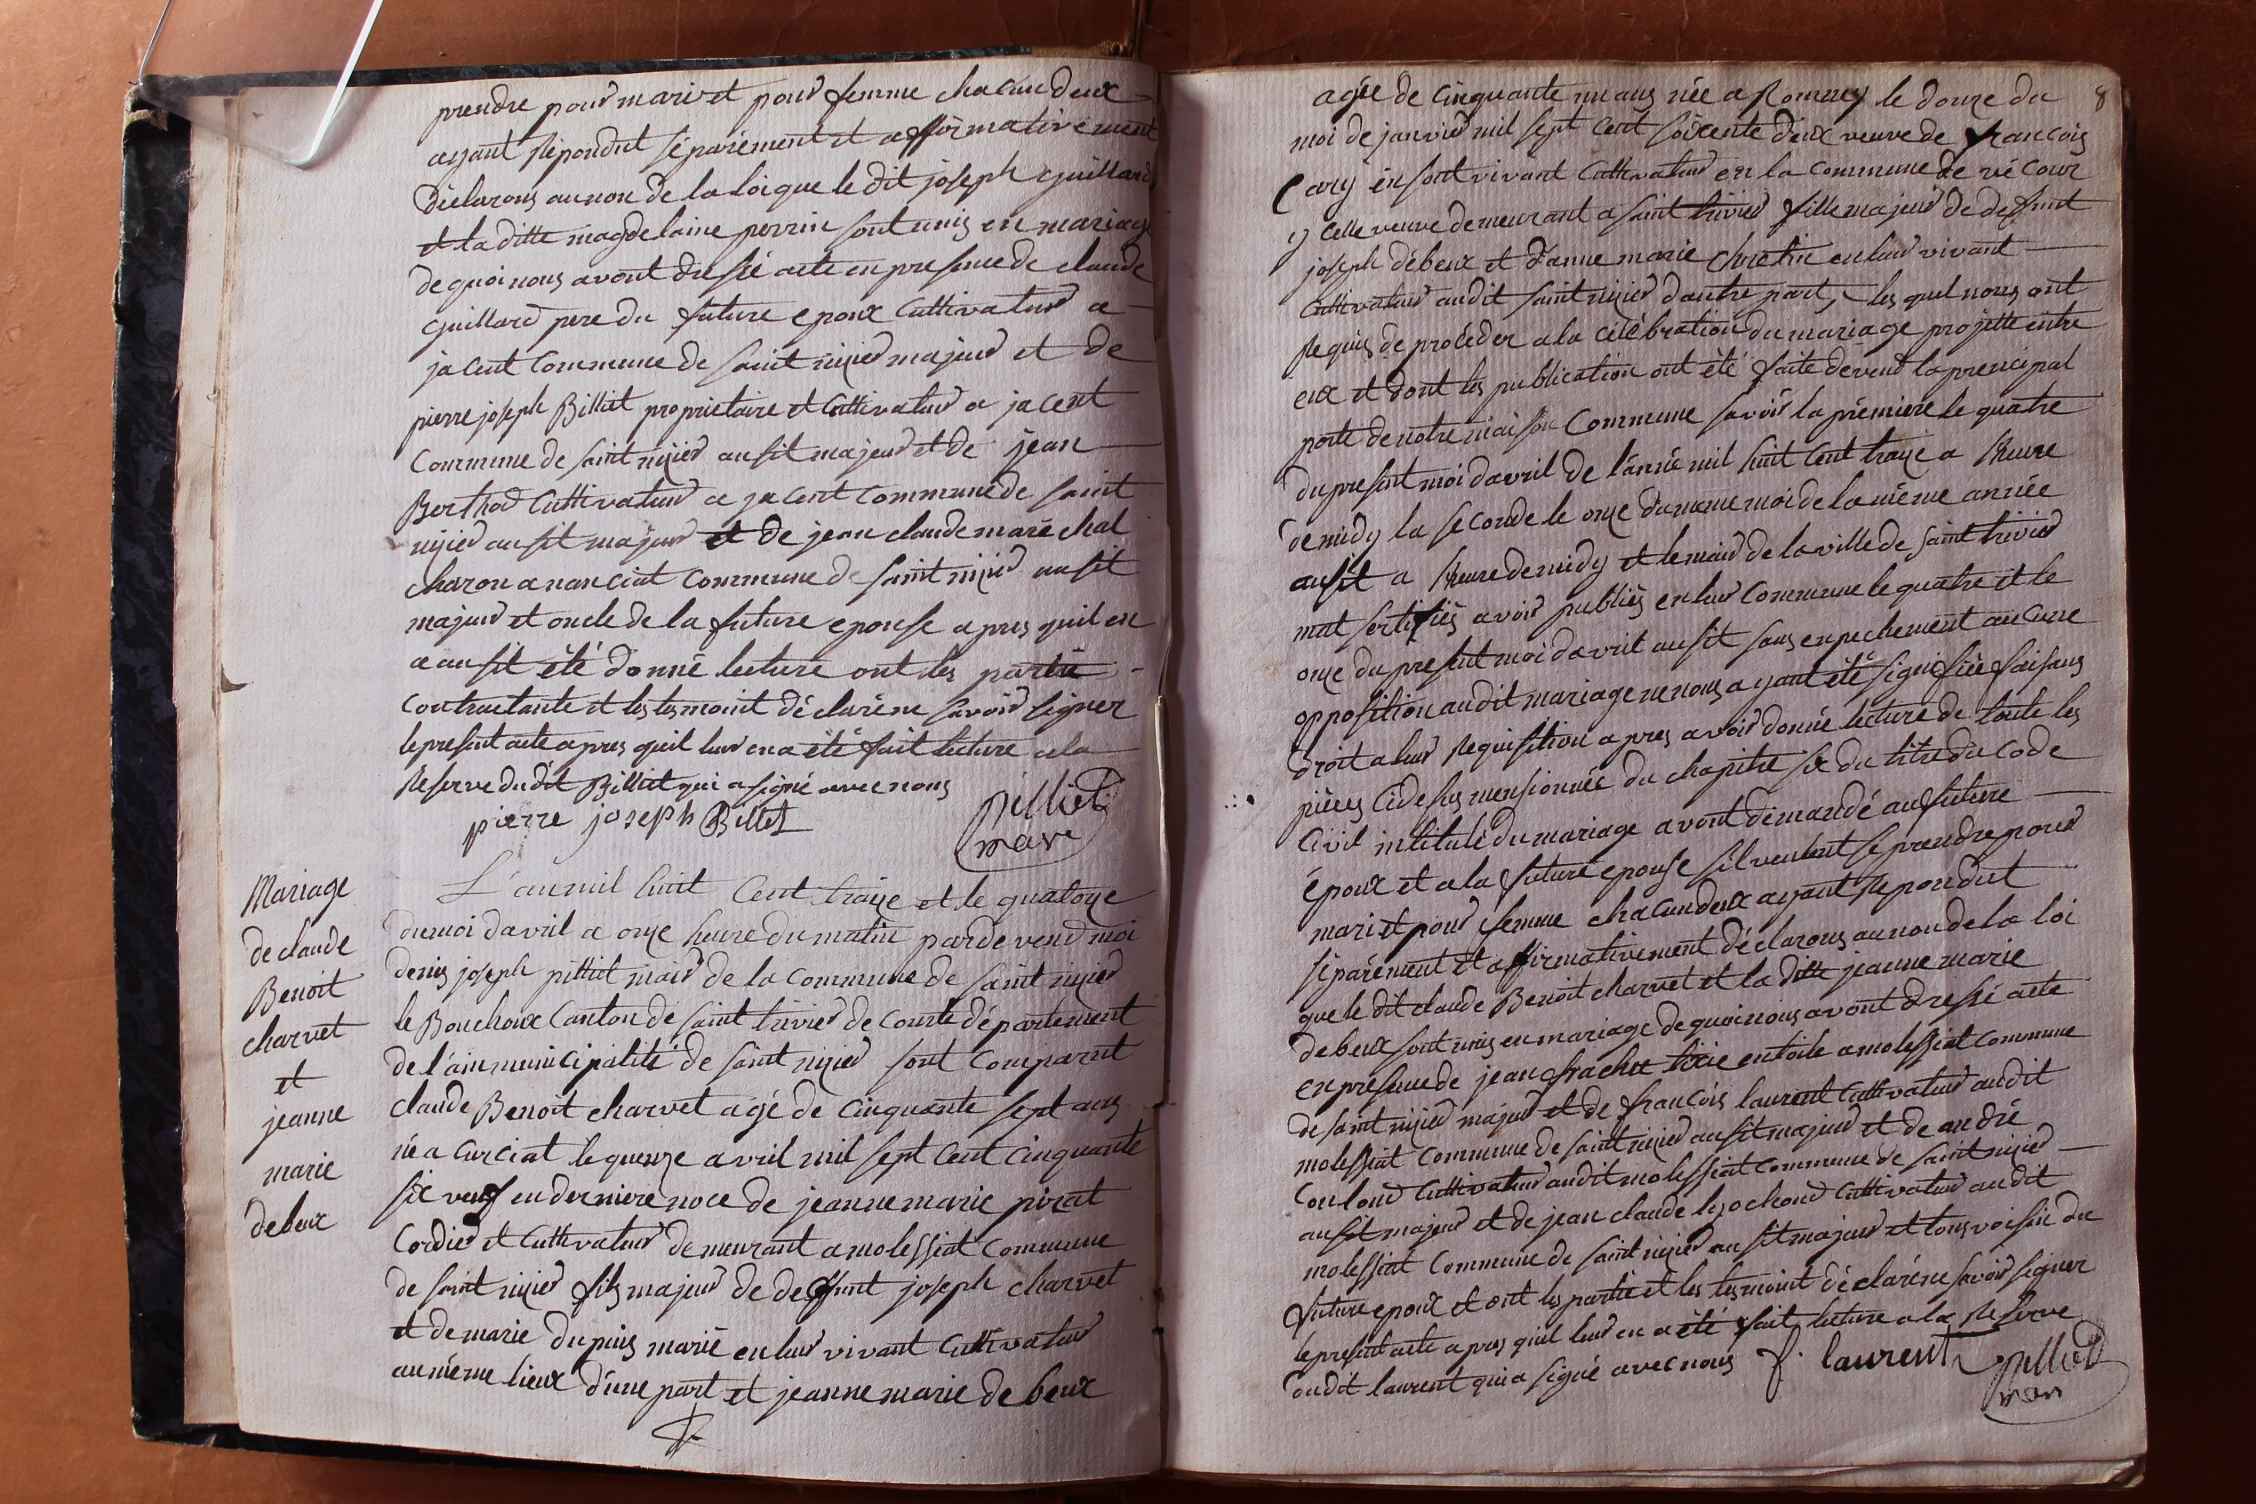 prendre pour mari et pour femme chacun deux
ayant répondut séparément et affirmativement
déclarons au non de la loi que le dit joseph guillard
et la ditte magdelaine perrin sont unis en mariage
de quoi nous avont dressé acte en presence de claude
guillard pere du future epoux Cultivateur a
jacent Commune de saint nizier majeur et de
pierre joseph Billiet proprietaire et Cultivateur a jacent
Commune de saint nizier ausit majeur et de jean
Berthod Cultivateur a jacent Commune de saint
nizier ausit majeur et de jean claude maréchal
charon a nanciat Commune de saint nizier ausit
majeur et oncle de la future epouse apres quil en
a ausit été donné lecture ont les partie
Contractante et les temoint déclaré ne savoir signer
le present acte apres quil leur en a été fait lecture a la
Reserve du dit Billiet qui a signé avec nous
pierre joseph Billet
pilliet
mare
Mariage
de claude
Benoit
charvet
et
jeanne
marie
debeux
L'an mil huit Cent traize et le quatorze
du moi davril a onze heure du matin par devend moi
denis joseph pilliet maire de la Commune de saint nizier
le Bouchoux Canton de saint trivier de Courte département
de l'ain municipalité de saint nizier sont Comparut
claude Benoit charvet agé de Cinquante sept ans
né a Curciat le quenze avril mil sept Cent Cinquante
six veuf en derniere noce de jeanne marie pirat
Cordier et Cultivateur demeurant a molessiat Commune
de saint nizier fils majeur de deffunt joseph charvet
et de marie dupuis marié en leur vivant Cultivateur
au même lieux d'une part et jeanne marie de beux
8
agée de Cinquante un ans née a Romeney le douze du
moi de janvier mil sept Cent soixente deux veuve de francois
Cary en sont vivant Cultivateur en la Commune de vécour
y celle veuve demeurant a saint trivier fille majeur de defunt
joseph débeux et d'anne marie Chretin en leur vivant
Cultivateur audit saint nizier dautre part, les quel nous ont
Requis de procéder a la célébration du mariage projette entre
eux et dont les publication ont été faite devend la prencipal
porte de notre maison Commune savoir la premiere le quatre
du present moi davril de l'anné mil huit Cent traize a heure
de midy la seconde le onze du meme moi de la même année
ausit a heure de midy et le maire de la ville de saint trivier
mat sertifiés avoir publiés en leur Commune le quatre et le
onze du present moi davril ausit sans enpechement aucune
opposition audit mariage ne nous ayant été signifiée faisans
droit a leur Requisition apres avoir donné lecture de toute les
pièces Cidesus mensionnée du chapitre six du titre du Code
Civil intitulé du mariage avont demandé au future
époux et a la future epouse sil veulent se prendre pour
mari et pour femme chacun deux ayant Repondut
séparément et affirmativement déclarons au non de la loi
que le dit claude Benoit charvet et la ditte jeanne marie
debeux sont unis en mariage de quoi nous avont dressé acte
en presence de jean en toile a molessiat Commune
de saint nizier majeur et de francois laurent Cultivateur audit
molessiat Commune de saint nizier ausit majeur et de andré
Coulond Cultivateur audit molessiat Commune de saint nizier
ausit majeur et de jean claude Cultivateur audit
molessiat Commune de saint nizier ausit majeur et tous voisin du
future epoux et ont les partie et les temoint déclaré ne savoir signer
le present acte apres quil leur en a été fait lecture a la Reserve
du dit laurent qui a signé avec nous f. laurent
pilliet
mare